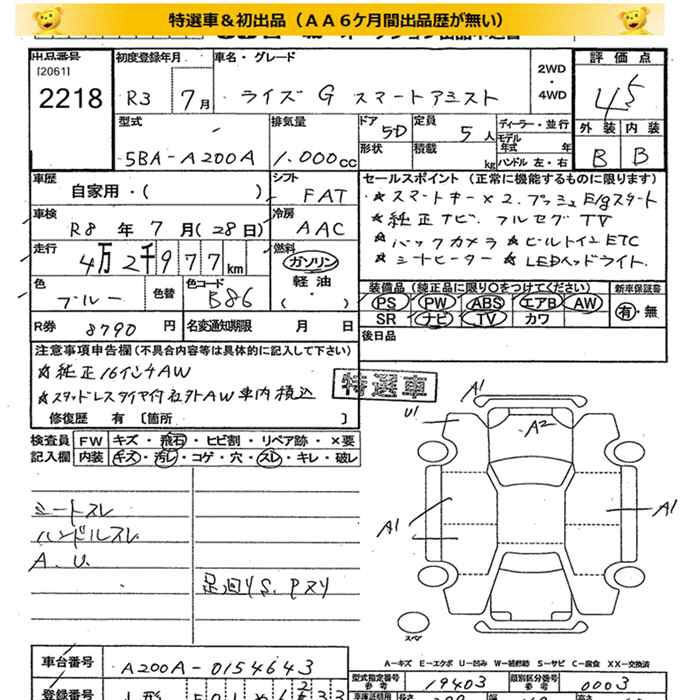 特選車&初出品（ＡＡ６ケ月間出品歴が無い）
出品番号 初度登録年月 車名・グレード 評価点
[2061]
2218 R3 7月 ライズ G スマートアシスト 2WD・4WD 4.5
型式 排気量 ドア 5D 定員 5人 ディーラー・並行 外装 内装
5BA-A200A 1.000cc 形状 積載 kg モデル年式 年 ハンドル 左・右 B B
車歴 シフト セールスポイント（正常に機能するものに限ります）
自家用・( ) FAT ★スマートキー×2. プッシュE/gスタート
車検 冷房 ★純正ナビ. フルセグTV
R8年7月(28日) AAC ★バックカメラ ★ビルトインETC
走行 燃料 ★シートヒーター ★LEDヘッドライト.
4万2千977km ガソリン 軽油・( )
色 色替 色コード 装備品（純正品に限り○をつけてください） 新車保証書
ブルー B86 PS PW ABS エアB AW 有・無
SR ナビ TV カワ
R券 8790円 名変通知期限 月 日 後日品
注意事項申告欄（不具合内容等は具体的に記入して下さい）
★純正16インチAW
★スタッドレスタイヤ付社外AW車内積込
特選車
修復歴 有〔箇所 〕
検査員 FW キズ・飛石・ヒビ割・リペア跡・×要
記入欄 内装 キズ・汚レ・コゲ・穴・スレ・キレ・破レ
シートスレ
ハンドルスレ
A.U.
足回りS.Pスソ
A1
U1
A2
A1
A1
スペア
A－キズ E－エクボ U－凹み W－補修跡 S－サビ C－腐食 XX－交換済
車台番号 A200A-0154643
型式指定番号 参考 19403 類別区分番号 参考 0003
登録番号